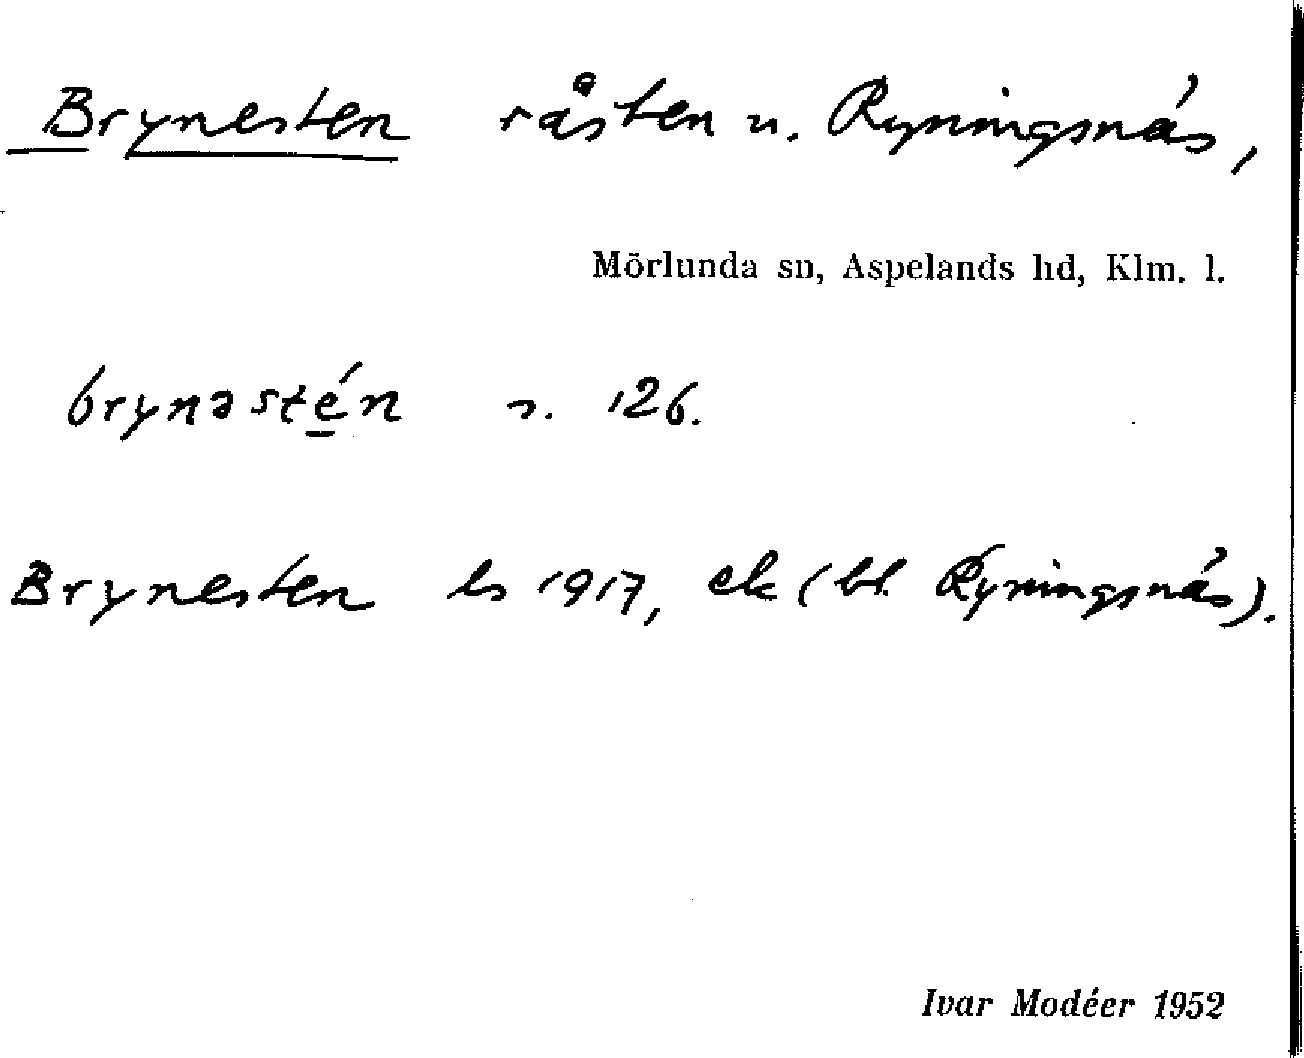 Brynesten råsten u. Ryningsnäs,
Mörlunda sn, Aspelands hd, Klm. l.
brynəstén s. 126.
Brynesten ls 1917, ek (bl. Ryningsnäs).
Ivar Modéer 1952